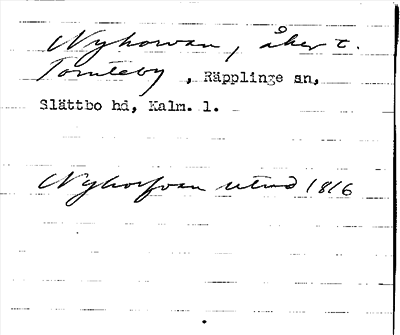 Nyhorvan, åker t.
Tornteby, Räpplinge sn,
Slättbo hd, Kalm. l.
Nyhorfvan utmd 1816